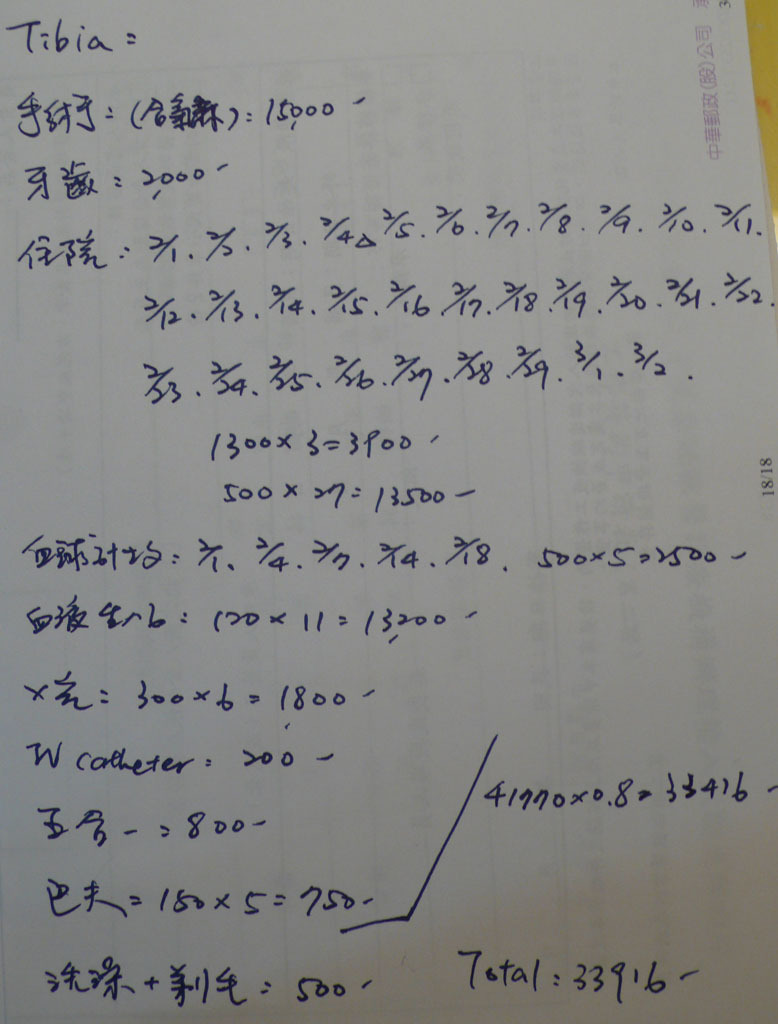 Tibia =
手術 = (含氣麻) = 15,000 -
牙齒 = 2,000 -
住院 : 2/1. 2/2. 2/3. 2/4△ 2/5. 2/6. 2/7. 2/8. 2/9. 2/10. 2/11.
2/12. 2/13. 2/14. 2/15. 2/16. 2/17. 2/18. 2/19. 2/20. 2/21. 2/22.
2/23. 2/24. 2/25. 2/26. 2/27. 2/28. 2/29. 3/1. 3/2.
1300 × 3 = 3900 -
500 × 27 = 13500 -
血球計數 : 2/1. 2/4. 2/7. 2/14. 2/18. 500×5=2500 -
血液生化 : 120 × 11 = 13,200 -
X光 = 300 × 6 = 1,800 -
IV catheter : 200 -
41770×0.8=33416 -
五合一 = 800 -
巴夫 = 150 × 5 = 750 -
洗澡 + 剃毛 = 500 -
Total : 33916 -
中華郵政(股)公司
18/18